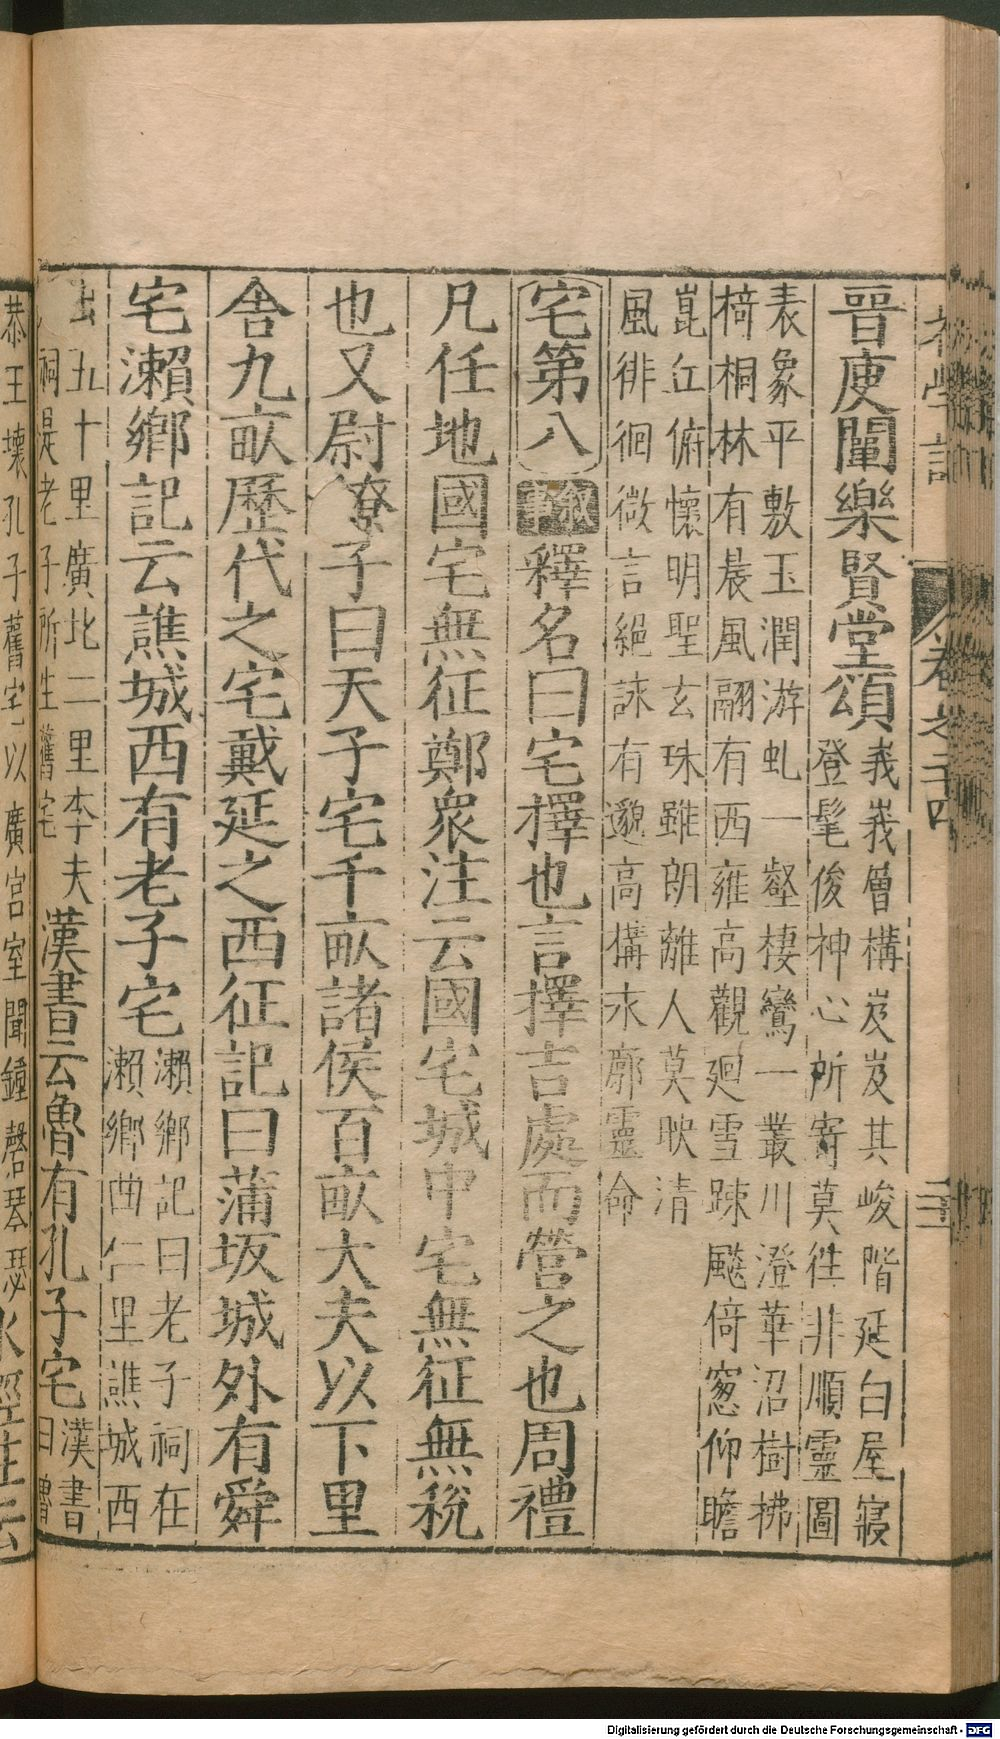 初學記 卷之二十四
晉庾闡樂賢堂頌
峩峩層構岌岌其峻階延白屋寢
登髦俊神心所寄莫往非順靈圖
表象平敷玉潤游虬一壑棲鸞一叢川澄華沼樹拂
椅桐林有晨風翮有西雍高觀廻雪踈飇倚窓仰瞻
崑丘俯懷明聖玄珠雖朗離人莫映清
風徘徊微言絕詠有邈高構永廓靈命
宅第八 敘事 釋名曰宅擇也言擇吉處而營之也周禮
凡任地國宅無征鄭衆注云國宅城中宅無征無稅
也又尉繚子曰天子宅千畝諸侯百畝大夫以下里
舎九畝歷代之宅戴延之西征記曰蒲坂城外有舜
宅瀨鄉記云譙城西有老子宅
瀨鄉記曰老子祠在
瀨鄉曲仁里譙城西
出五十里廣北二里李夫
祠是老子所生舊宅
漢書云魯有孔子宅
漢書
曰魯
恭王壞孔子舊宅以廣宮室聞鐘磬琴瑟
Digitalisierung gefördert durch die Deutsche Forschungsgemeinschaft - DFG